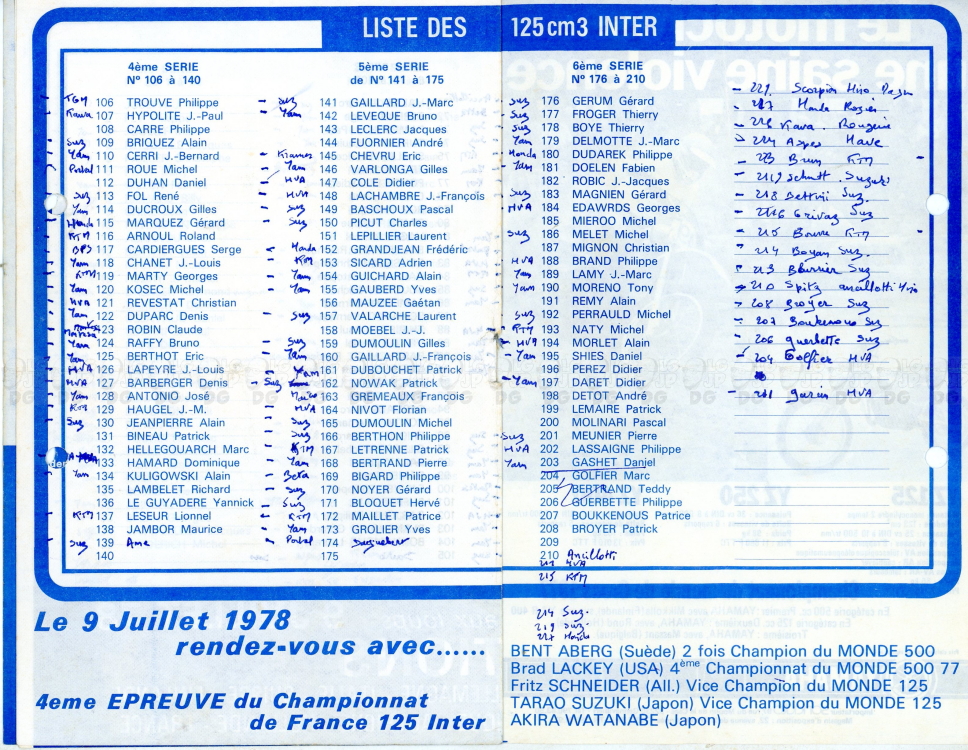 LISTE DES 125 cm3 INTER
4ème SERIE
N° 106 à 140
TGM 106 TROUVE Philippe
Kawa 107 HYPOLITE J.-Paul
108 CARRE Philippe
Suz 109 BRIQUEZ Alain
Yam 110 CERRI J.-Bernard
Portal 111 ROUE Michel
112 DUHAN Daniel
Suz 113 FOL René
Yam 114 DUCROUX Gilles
Honda 115 MARQUEZ Gérard
KTM 116 ARNOUL Roland
117 CARDIERGUES Serge
Yam 118 CHANET J.-Louis
KTM 119 MARTY Georges
Yam 120 KOSEC Michel
HVA 121 REVESTAT Christian
Yam 122 DUPARC Denis
Montesa 123 ROBIN Claude
Yam 124 RAFFY Bruno
Yam 125 BERTHOT Eric
HVA 126 LAPEYRE J.-Louis
HVA 127 BARBERGER Denis
Yam 128 ANTONIO José
KTM 129 HAUGEL J.-M.
Suz 130 JEANPIERRE Alain
131 BINEAU Patrick
132 HELLEGOUARCH Marc
133 HAMARD Dominique
Yam 134 KULIGOWSKI Alain
135 LAMBELET Richard
136 LE GUYADERE Yannick
KTM 137 LESEUR Lionnel
138 JAMBOR Maurice
Suz 139 Ame
140
5ème SERIE
de N° 141 à 175
Suz 141 GAILLARD J.-Marc
Yam 142 LEVEQUE Bruno
143 LECLERC Jacques
144 FUORNIER André
145 CHEVRU Eric
Yam 146 VARLONGA Gilles
HVA 147 COLE Didier
HVA 148 LACHAMBRE J.-François
Suz 149 BASCHOUX Pascal
Suz 150 PICUT Charles
151 LEPILLIER Laurent
Honda 152 GRANDJEAN Frédéric
KTM 153 SICARD Adrien
Yam 154 GUICHARD Alain
Yam 155 GAUBERD Yves
156 MAUZEE Gaétan
Suz 157 VALARCHE Laurent
158 MOEBEL J.-J.
Suz 159 DUMOULIN Gilles
Yam 160 GAILLARD J.-François
Yam 161 DUBOUCHET Patrick
Suz 162 NOWAK Patrick
163 GREMEAUX François
HVA 164 NIVOT Florian
Suz 165 DUMOULIN Michel
Suz 166 BERTHON Philippe
KTM 167 LETRENNE Patrick
Yam 168 BERTRAND Pierre
Beta 169 BIGARD Philippe
Suz 170 NOYER Gérard
Suz 171 BLOQUET Hervé
KTM 172 MAILLET Patrice
Yam 173 GROLIER Yves
Portal 174
175
6ème SERIE
N° 176 à 210
Suz 176 GERUM Gérard
Suz 177 FROGER Thierry
Suz 178 BOYE Thierry
Yam 179 DELMOTTE J.-Marc
Honda 180 DUDAREK Philippe
Yam 181 DOELEN Fabien
182 ROBIC J.-Jacques
Suz 183 MAGNIEN Gérard
HVA 184 EDAWRDS Georges
185 MIEROO Michel
Suz 186 MELET Michel
187 MIGNON Christian
HVA 188 BRAND Philippe
Yam 189 LAMY J.-Marc
Yam 190 MORENO Tony
191 REMY Alain
192 PERRAULD Michel
KTM 193 NATY Michel
HVA 194 MORLET Alain
Yam 195 SHIES Daniel
196 PEREZ Didier
Yam 197 DARET Didier
198 DETOT André
199 LEMAIRE Patrick
200 MOLINARI Pascal
Suz 201 MEUNIER Pierre
HVA 202 LASSAIGNE Philippe
Yam 203 GASHET Daniel
204 GOLFIER Marc
205 BERTRAND Teddy
206 GUERBETTE Philippe
207 BOUKKENOUS Patrice
208 BROYER Patrick
209
210 Ancillotti
211 HVA
215 KTM
214 Suz.
219 Suz.
227 Honda
Scorpion
Honda Rozier
Kawa.
Brun KTM
219 Schmitt. Suzuki
218 Suz.
216 Grivaz Suz
215 KTM
214 Boyan Suz.
213 Suz
210 Spitz ancillotti
208 Broyer Suz
207 Boukenous Suz
206 guerbette Suz
204 Golfier HVA
HVA
Le 9 Juillet 1978
rendez-vous avec......
4eme EPREUVE du Championnat
de France 125 Inter
BENT ABERG (Suède) 2 fois Champion du MONDE 500
Brad LACKEY (USA) 4ème Championnat du MONDE 500 77
Fritz SCHNEIDER (All.) Vice Champion du MONDE 125
TARAO SUZUKI (Japon) Vice Champion du MONDE 125
AKIRA WATANABE (Japon)